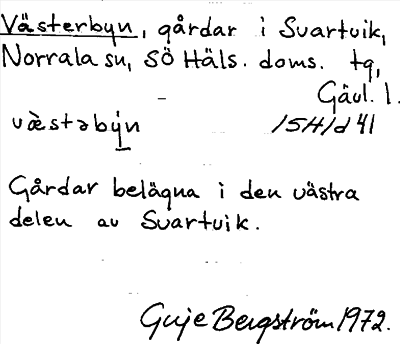 Västerbyn, gårdar i Svartvik,
Norrala sn, SÖ Häls. doms. tg,
Gävl. l.
væ̀stəby̌n 15H1d41
Gårdar belägna i den västra
delen av Svartvik.
Guje Bergström 1972.